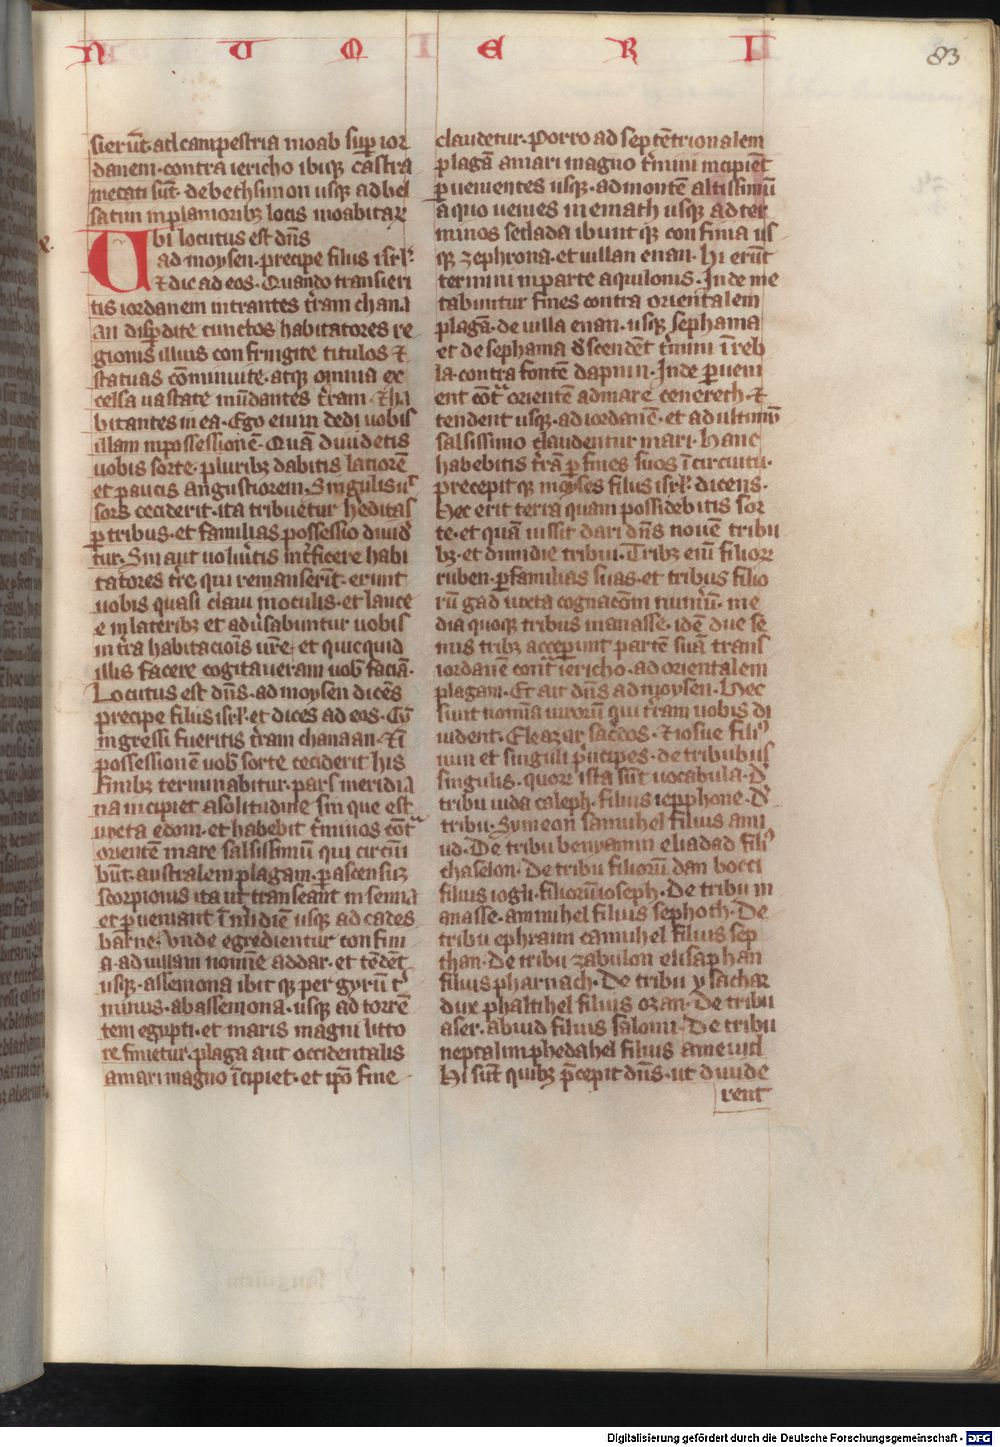 N U M E R I
83
sierūt ad campestria moab sup̱ ior
danem · contra iericho ibiqꝫ castra
metati sūt · de bethsimon usqꝫ ad bel
satim in planioribꝫ locis moabitaꝝ
Ubi locutus est dn̄s
ad moysen · precipe filiis isrl̓
⁊ dic ad eos · Quando transieri
tis iordanem intrantes t̄ram chana
an disp̱dite cunctos habitatores re
gionis illius confringite titulos ⁊
statuas cōminuite · atqꝫ omnia ex
celsa uastate mūdantes t̄ram · ⁊ ha
bitantes in ea · Ego enim dedi uobis
illam in possessionē · Quā diuidetis
uobis sorte · pluribꝫ dabitis latiorē
et paucis angustiorem · Singulis ut
sors ceciderit · ita tribuetur h̓editas
p̱ tribus · et familias possessio diuidr̄
tur · Sin aut̄ uolūitis int̓ficere habi
tatores tr̄e · qui remanserīt · erunt
uobis quasi claui in oculis · et lance
e in lateribꝫ et adūsabuntur uobis
in t̄ra habitacōis ur̄e · et quicquid
illis facere cogitaueram uob̓ faciā ·
Locutus est dn̄s · ad moysen dicēs
precipe filiis isrl̓ · et dices ad eos · Cū
ingressi fueritis t̄ram chanaan · ⁊ ī
possessionē uob̓ sorte ceciderit his
finibꝫ terminabitur · pars meridia
na incipiet a solitudine sin que est
iuxta edom · et habebit t̓minos cōt̓
orientē mare salsissimū qui circūi
būt · australem plagam · p̱ ascensuꝫ
scorpionis ita ut transeant in senna
et p̱ueniant ī m̓idiē usqꝫ ad cades
barne · Unde egredientur confini
a · ad uillam nomīe addar · et tēdēt
usqꝫ · assemona ibit qꝫ per gyrū t̓
minus · ab assemona · usqꝫ ad torrē
tem egypti · et maris magni litto
re finietur · plaga aut̄ occidentalis
a mari magno īcipiet · et ip̄o fine
claudetur · Porro ad septētrionalem
plagā a mari magno t̓mini incipiēt
p̱uenientes usqꝫ · ad montē altissimū
a quo uenies in emath usqꝫ ad ter
minos sedada ibunt qꝫ confinia us
qꝫ zephrona · et uillan enan · Hi erūt
termini in parte aquilonis · Inde me
tabuntur fines contra orientalem
plagā · de uilla enan · usqꝫ sephama
et de sephama d̓scendēt t̓mini ī reb
la · contra fontē dapnin · Inde p̱ueni
ent cōt̓ orientē ad mare cenereth · ⁊
tendent usqꝫ · ad iordanē · et ad ultimū
salsissimo claudentur mari · Hanc
habebitis t̄rā p̱ fines suos ī circuitu ·
precepit qꝫ moyses filiis isrl̓ · dicens ·
Hec erit terra quam possidebitis sor
te · et quā iussit dari dn̄s nouē tribu
bꝫ · et dimidie tribui · Tribꝫ enī filioꝝ
ruben · p̱ familias suas · et tribus filio
rū gad iuxta cognacōm num̄ū · me
dia quoqꝫ tribus manasse · idē due se
mis tribꝫ acceperunt partē suā trans
iordanē cont̓ iericho · ad orientalem
plagam · Et ait dn̄s ad moysen · Hec
sunt nomīa uiroꝝ qui t̄ram uobis di
uident · Eleazar sac̓dos · ⁊ iosue fili᾽
nun et singuli p̓ncipes · de tribubus
singulis · quoꝝ ista sūt uocabula · D̓
tribu iuda caleph · filius iepphone · D̓
tribu · Symeon samuhel filius ami
ud · De tribu benyamin eliadad fili᾽
chaselon · De tribu filiorū dan bocci
filius iogli · filiorū ioseph · De tribu m
anasse · annihel filius sephoth · De
tribu ephraim camuhel filius sep
than · De tribu zabulon elisaphan
filius pharnach · De tribu ysachar
dux phaltihel filius ozan · De tribu
aser · abiud filius salomi · De tribu
neptalim phedahel filius ameiud
Hi sūt quibꝫ p̄cepit dn̄s · ut diuide
rent
Digitalisierung gefördert durch die Deutsche Forschungsgemeinschaft - DFG